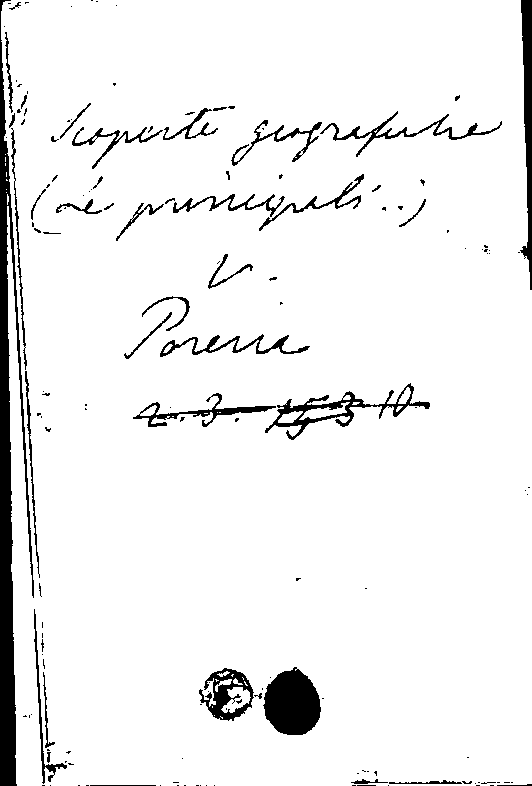 Scoperte geografiche
(Le principali..)
V.
Porena
2. 3. 15 3 10